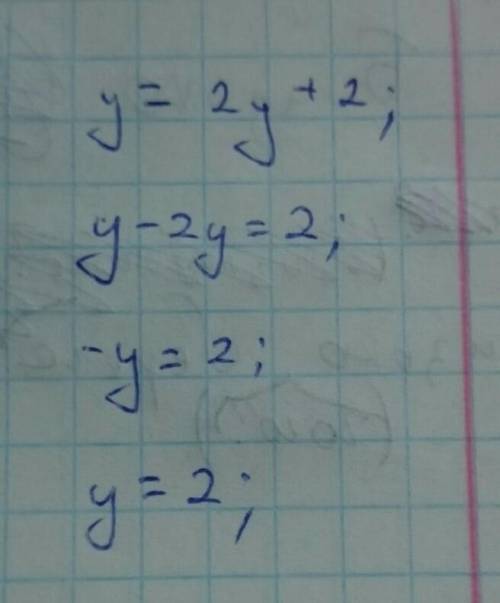 y = 2y + 2;
y - 2y = 2;
-y = 2;
y = 2;